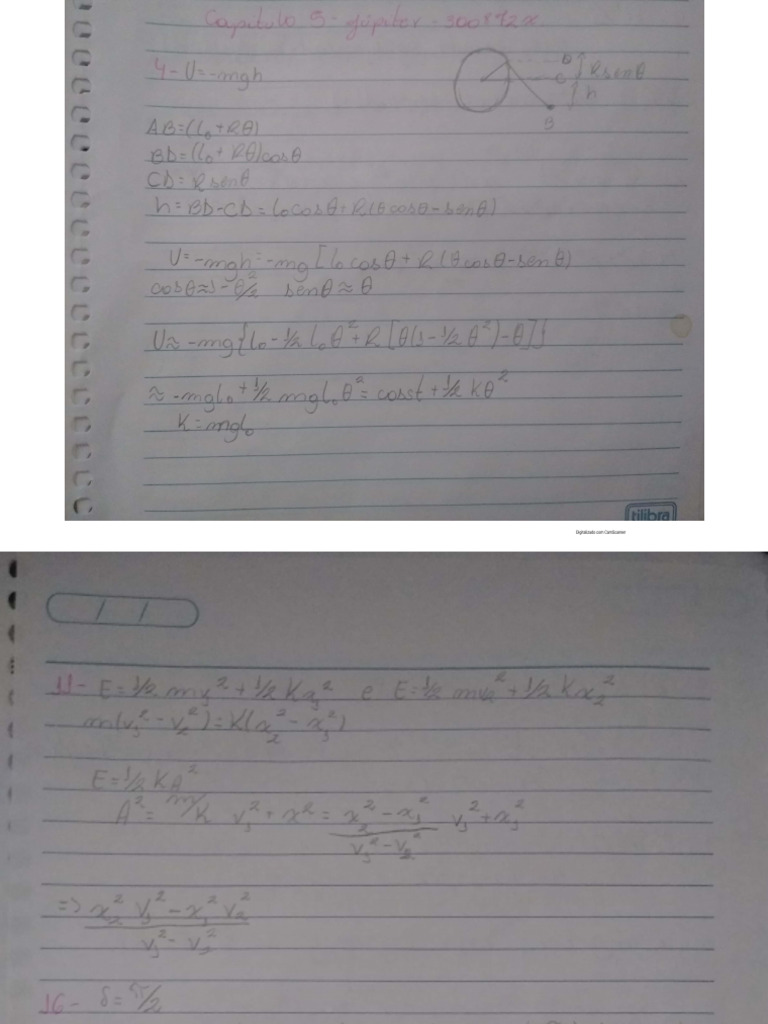 Capitulo 5 - Júpiter - 300872x
4- U=-mgh
D
C
R senθ
h
B
AB=(l₀+Rθ)
BD=(l₀+Rθ)cosθ
CD=R senθ
h=BD-CD=l₀cosθ+R(θcosθ-senθ)
U=-mgh=-mg[l₀cosθ+R(θcosθ-senθ)
cosθ≈1-θ²/2 senθ≈θ
U≈-mg{l₀-½l₀θ²+R[θ(1-½θ²)-θ]}
≈-mgl₀+½mgl₀θ²=const+½Kθ²
K=mgl₀
tilibra
Digitalizado com CamScanner
/ /
11- E=½mv₁²+½Kx₁² e E=½mv₂²+½Kx₂²
m(v₁²-v₂²)=K(x₂²-x₁²)
E=½KA²
A²=m/K v₁²+x²=x₂²-x₁²/v₁²-v₂² v₁²+x₁²
=> x₂²v₁²-x₁²v₂²/v₁²-v₂²
16- δ=π/2